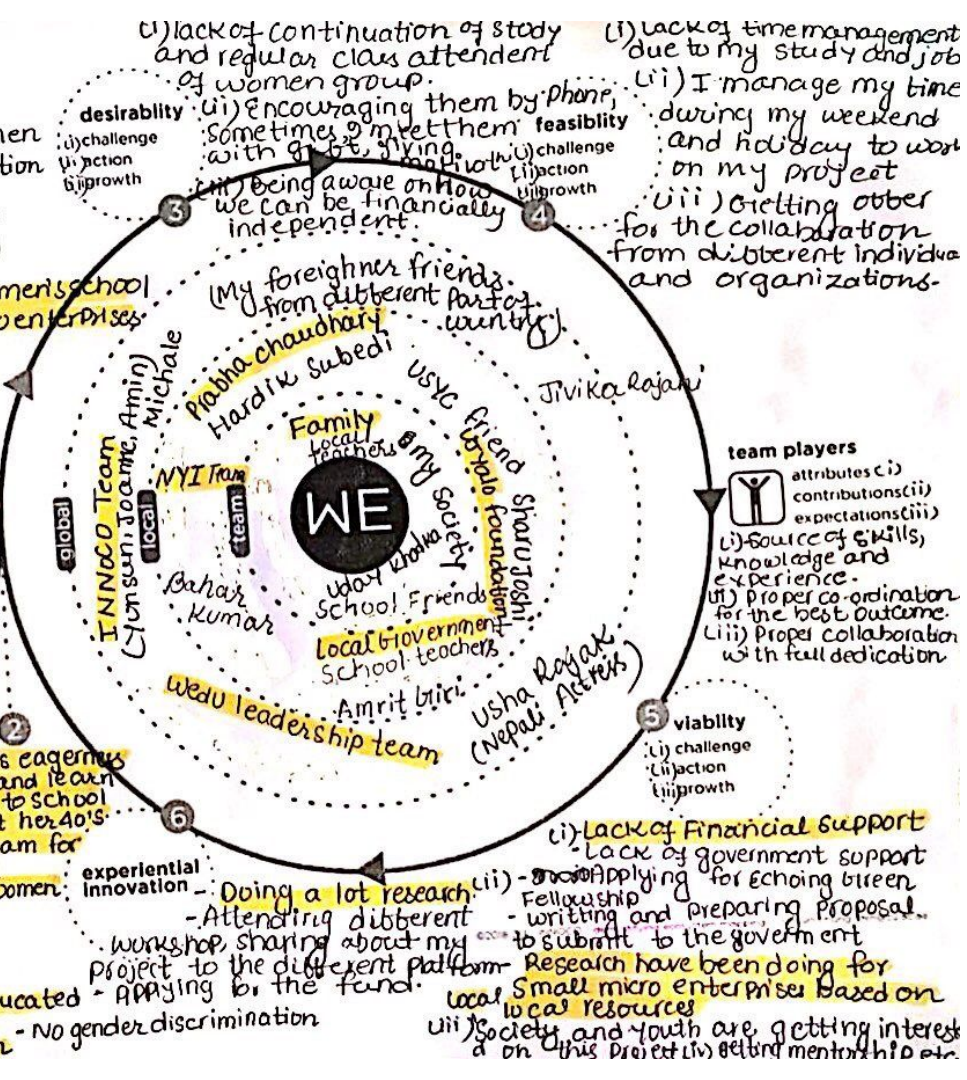 (i) lack of continuation of study
and regular class attendent
of women group.
(ii) Encouraging them by phone,
sometimes I meet them
with gift, giving
(iii) Being aware on how
we can be financially
independent.
desirablity
(i) challenge
(ii) action
(iii) growth
3
(i) Lack of time management
due to my study and job
(ii) I manage my time
during my weekend
and holiday to work
on my project
(iii) Getting offer
for the collaboration
from different individua
and organizations.
feasiblity
(i) challenge
(ii) action
(iii) growth
4
men
tion
school
enterprises.
(My foreighner friends
from different part of
country)
Prabha chaudhary
Hardik Subedi
Michale
INNOCO Team
(Yunsun, Joanne, Amin)
NYI Team
global
local
team
Family
local
teachers
WE
my Society
Uday Khadka
School Friends
Local Government
School teachers
Amrit Giri
Bahar
Kumar
USYC friend Sharu Joshi
foundation
Jivika Rajani
Usha Rajak
(Nepali Actress)
Wedu leadership team
team players
attributes (i)
contributions (ii)
expectations (iii)
(i) Source of skills,
knowledge and
experience.
(ii) Proper co-ordination
for the best outcome.
(iii) Proper collaboration
with full dedication
5
viability
(i) challenge
(ii) action
(iii) growth
(i) Lack of Financial Support
Lack of government support
(ii) - Applying for Echoing Green
Fellowship
- writting and preparing proposal
to submit to the goverment
- Research have been doing for
Small micro enterprises based on
local resources
local
(iii) Society and youth are getting interest
on this project (iv) getting mentorship etc.
2
s eagerness
and learn
to school
t her 40's.
am for
women
ucated
6
experiential
innovation
- Doing a lot research
- Attending different
workshop, sharing about my
project to the different platform
- Applying for the fund.
- No gender discrimination